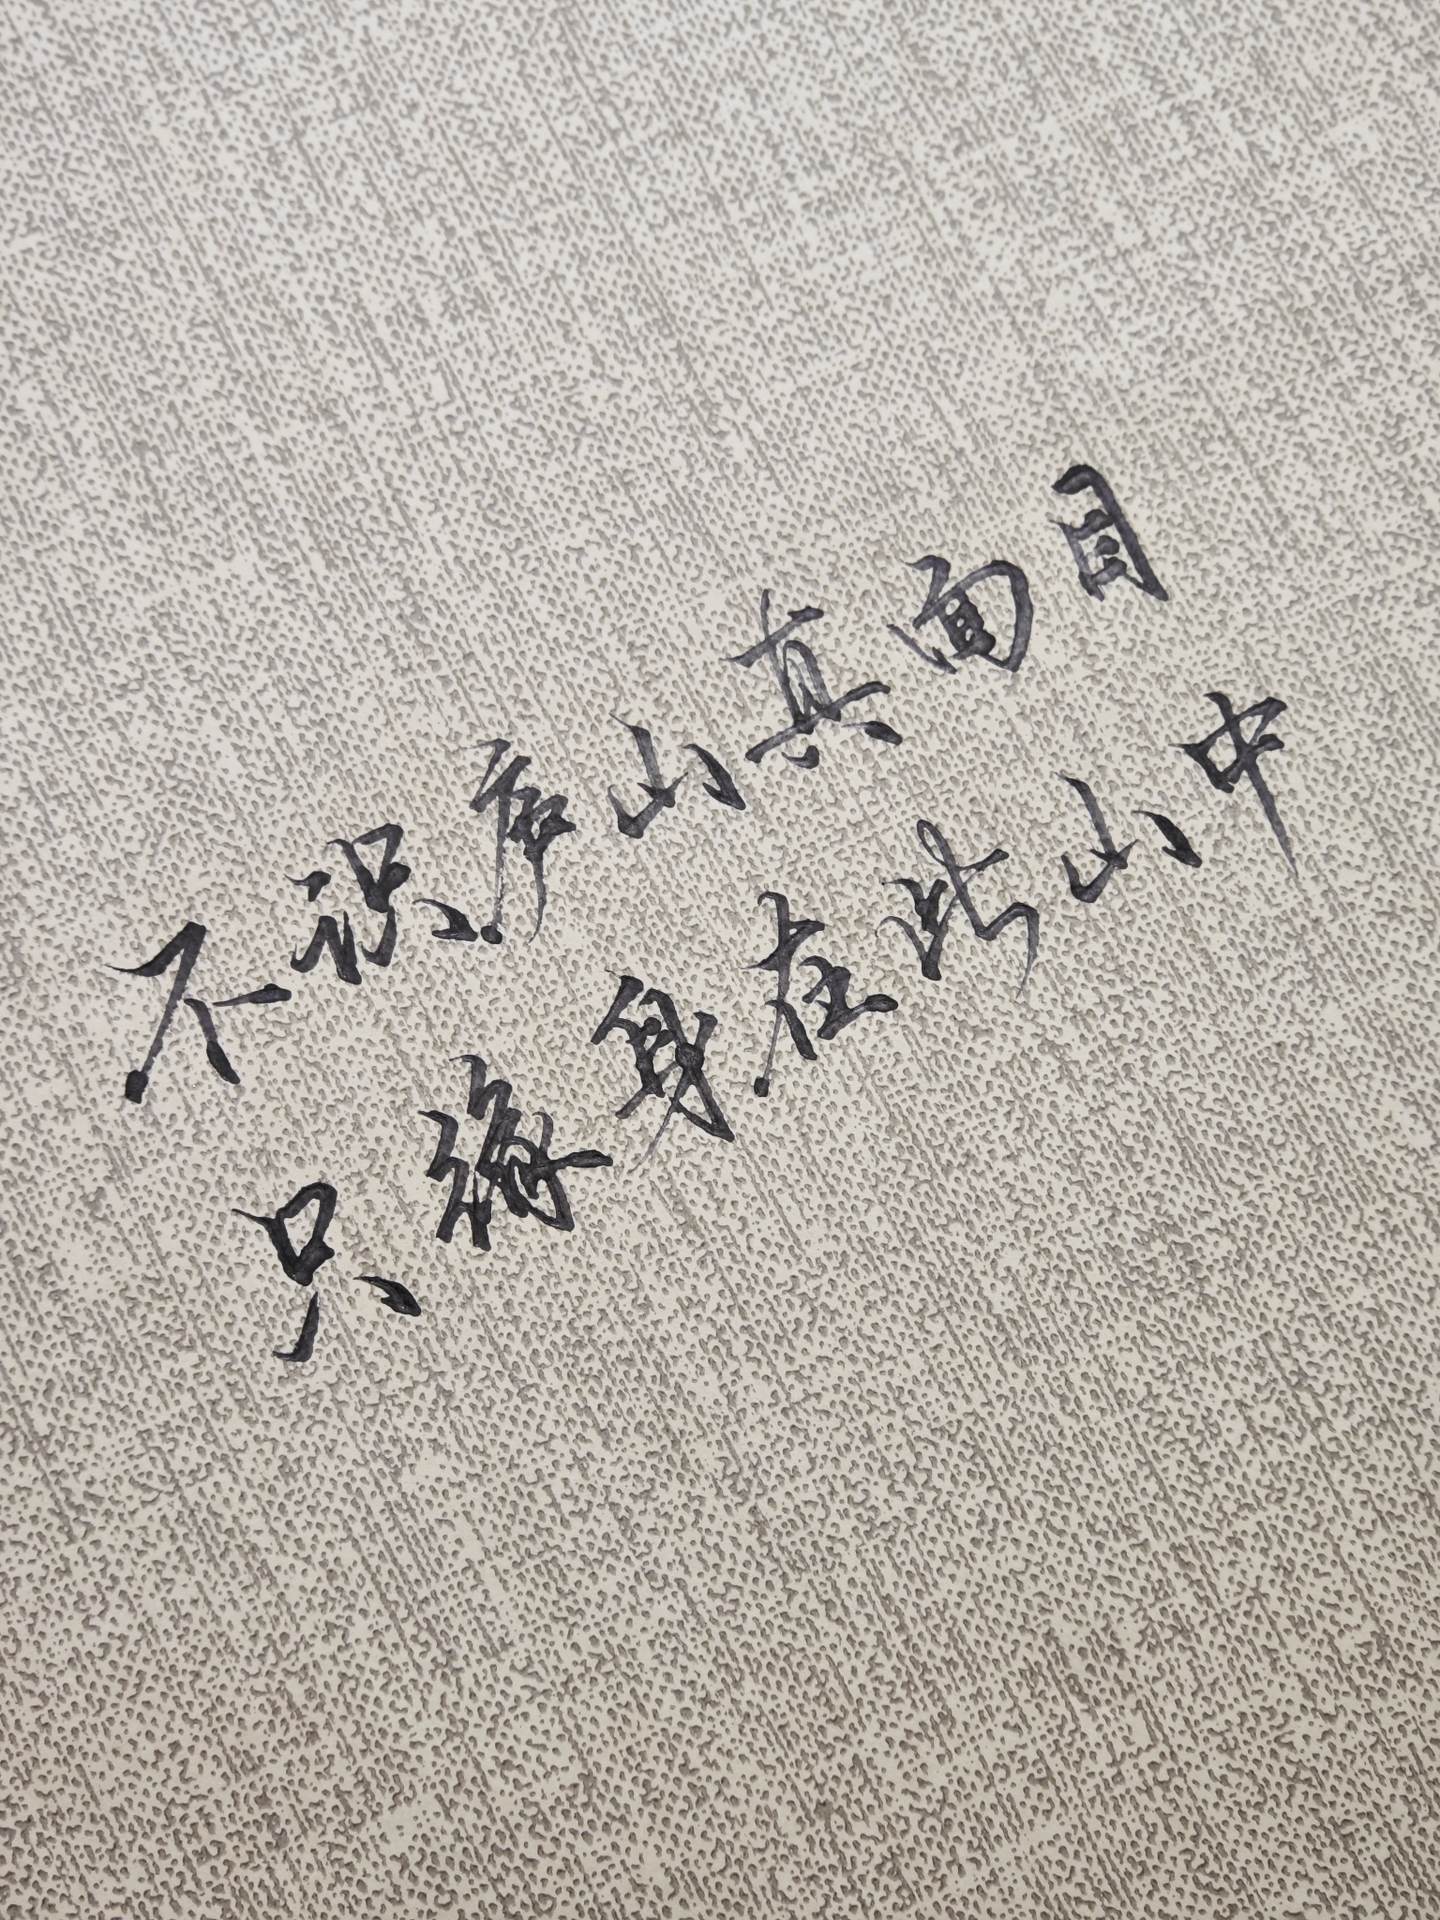 不识庐山真面目
只缘身在此山中